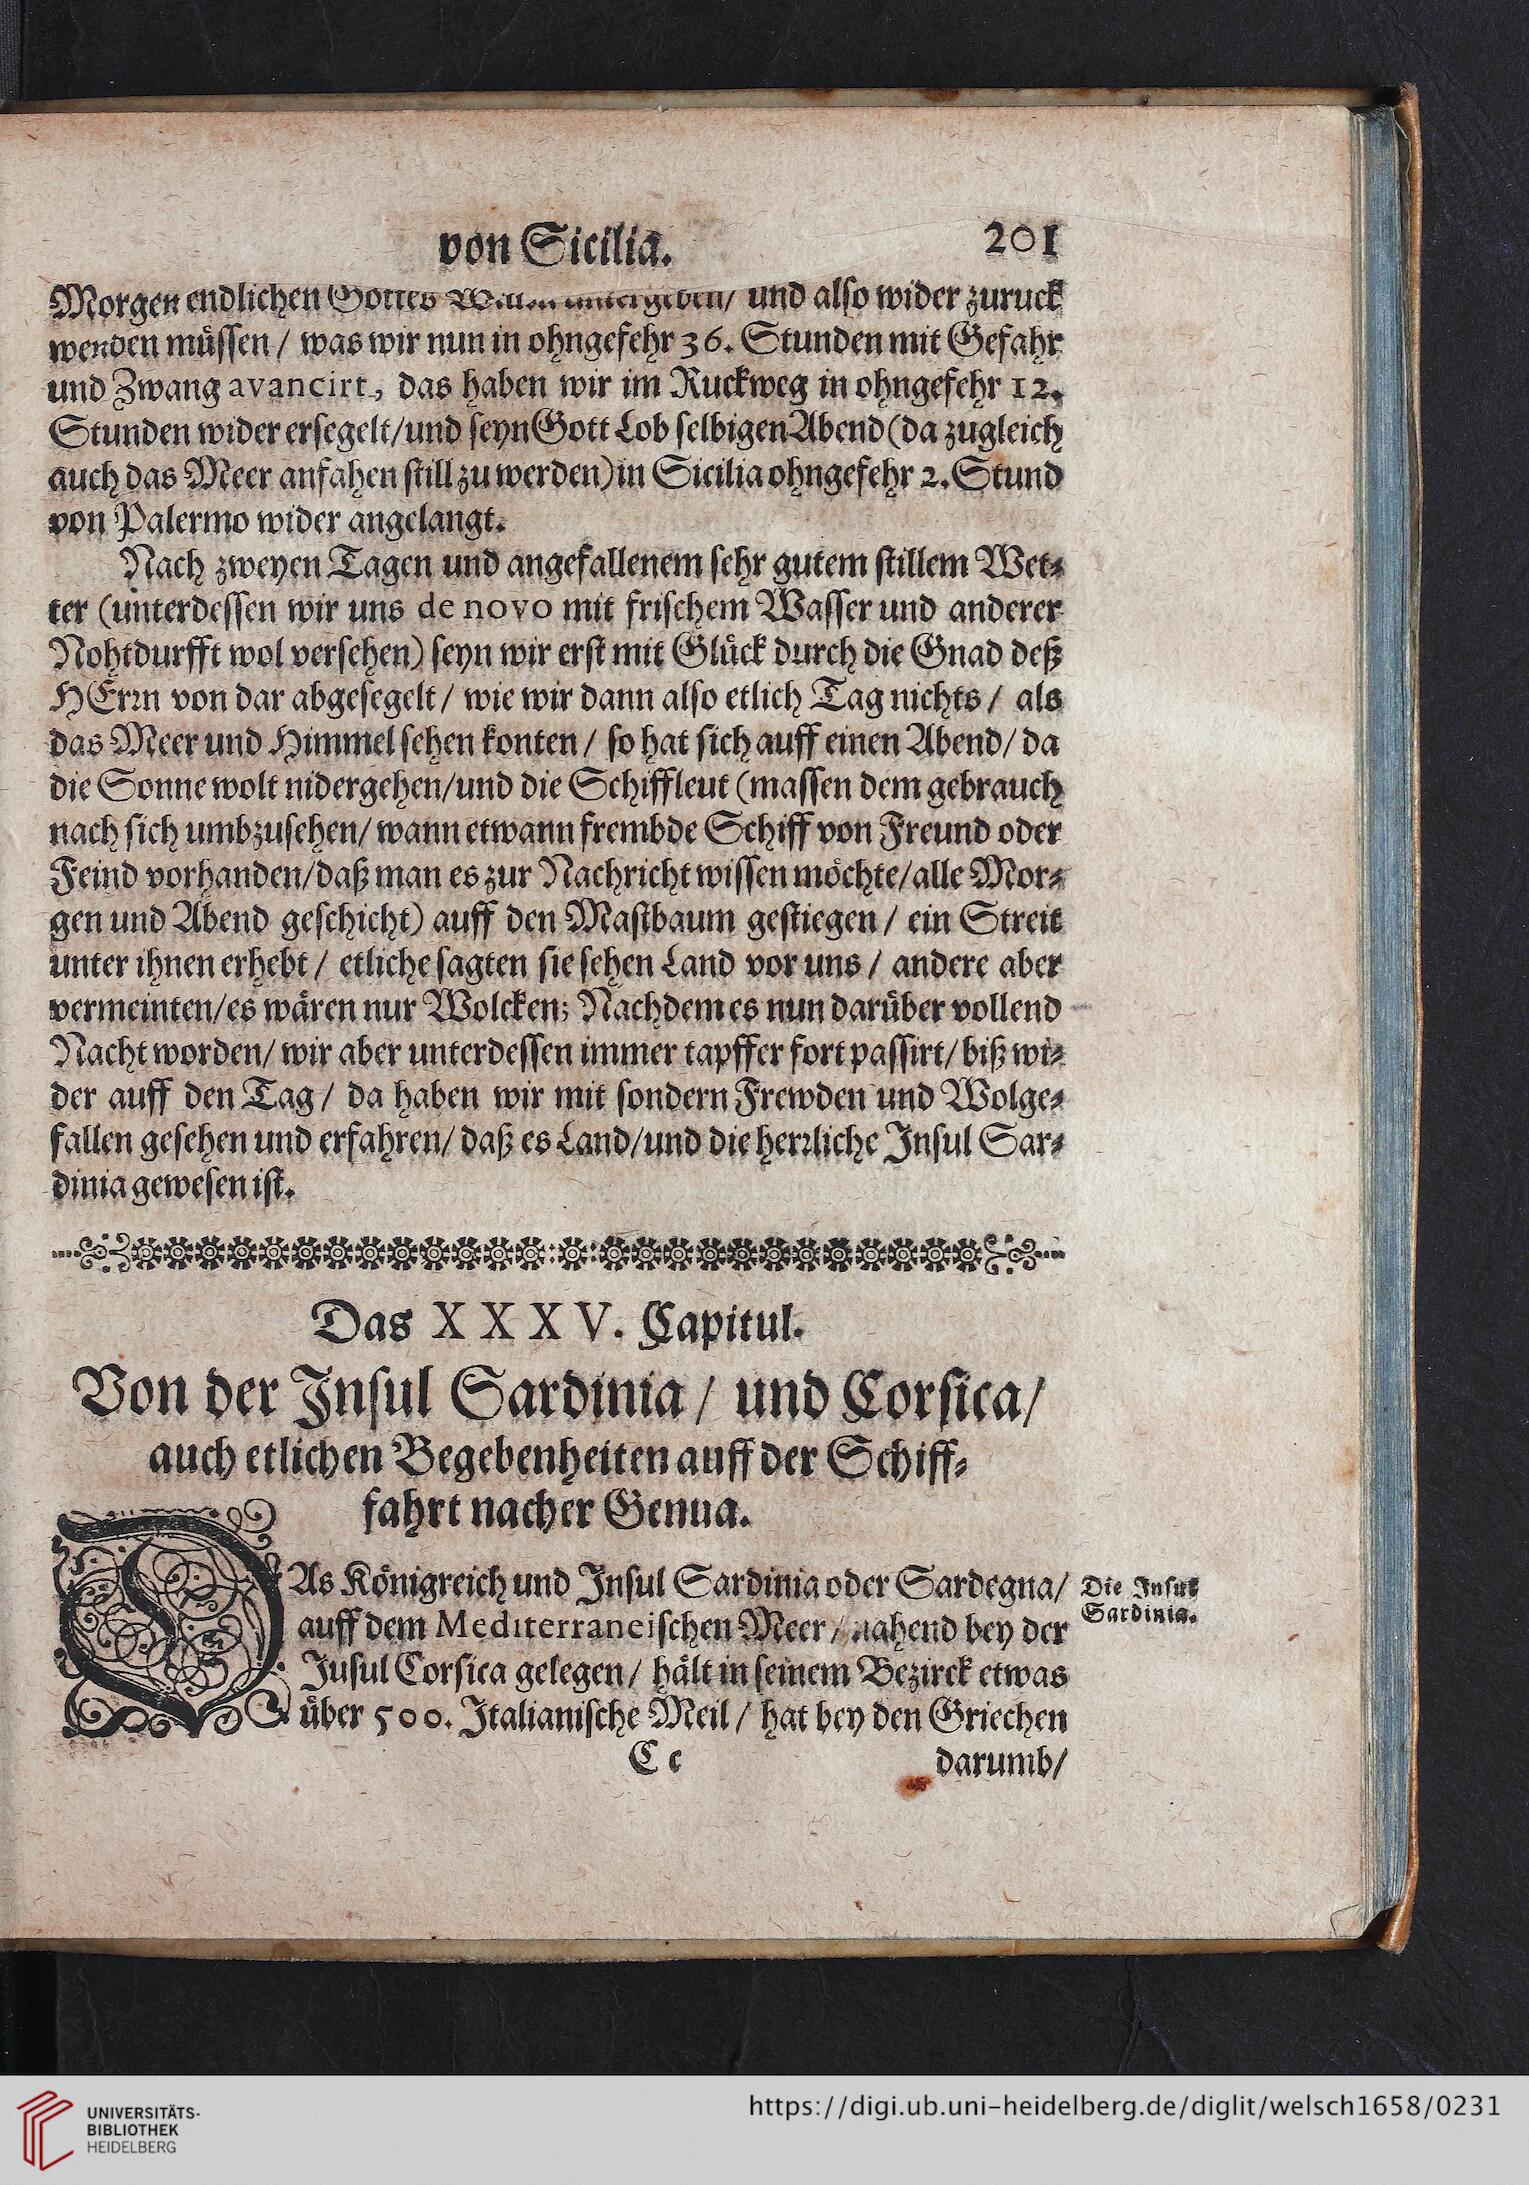 von Sicilia. 201
Morgen endlichen Gottes untergeben/ und also wider zuruck
wenden müssen / was wir nun in ohngefehr 36. Stunden mit Gefahr
und Zwang avancirt, das haben wir im Ruckweg in ohngefehr 12.
Stunden wider ersegelt/und seyn Gott Lob selbigen Abend (da zugleich
auch das Meer anfahen still zu werden) in Sicilia ohngefehr 2. Stund
von Palermo wider angelangt.
Nach zweyen Tagen und angefallenem sehr gutem stillem Wet-
ter (unterdessen wir uns de novo mit frischem Wasser und anderer
Nohtdurfft wol versehen) seyn wir erst mit Glück durch die Gnad deß
HErrn von dar abgesegelt / wie wir dann also etlich Tag nichts / als
das Meer und Himmel sehen konten / so hat sich auff einen Abend/ da
die Sonne wolt nidergehen/und die Schiffleut (massen dem gebrauch
nach sich umbzusehen/ wann etwann frembde Schiff von Freund oder
Feind vorhanden/daß man es zur Nachricht wissen möchte/alle Mor-
gen und Abend geschicht) auff den Mastbaum gestiegen / ein Streit
unter ihnen erhebt / etliche sagten sie sehen Land vor uns / andere aber
vermeinten/es wären nur Wolcken; Nachdem es nun darüber vollend
Nacht worden/ wir aber unterdessen immer tapffer fort passirt/ biß wi-
der auff den Tag / da haben wir mit sondern Frewden und Wolge-
fallen gesehen und erfahren/ daß es Land/und die herrliche Insul Sar-
dinia gewesen ist.
Das XXXV. Capitul.
Von der Insul Sardinia / und Corsica/
auch etlichen Begebenheiten auff der Schiff-
fahrt nacher Genua.
DAs Königreich und Insul Sardinia oder Sardegna/
auff dem Mediterraneischen Meer / nahend bey der
Insul Corsica gelegen / hält in seinem Bezirck etwas
über 500. Italianische Meil / hat bey den Griechen
Die Insul
Sardinia.
Cc darumb/
UNIVERSITÄTS-
BIBLIOTHEK
HEIDELBERG
https://digi.ub.uni-heidelberg.de/diglit/welsch1658/0231